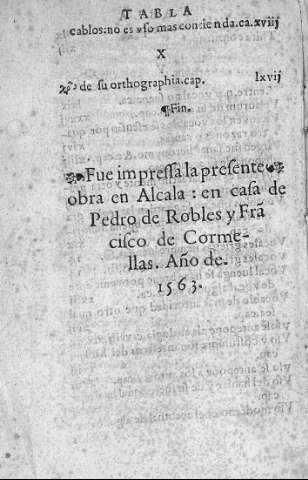 TABLA
cablos: no es vso mas contienda. ca. xviij
X
de su orthographia. cap. lxvij
¶Fin.
Fue impressa la presente
obra en Alcala : en casa de
Pedro de Robles y Frã
cisco de Corme-
llas. Año de.
1563.